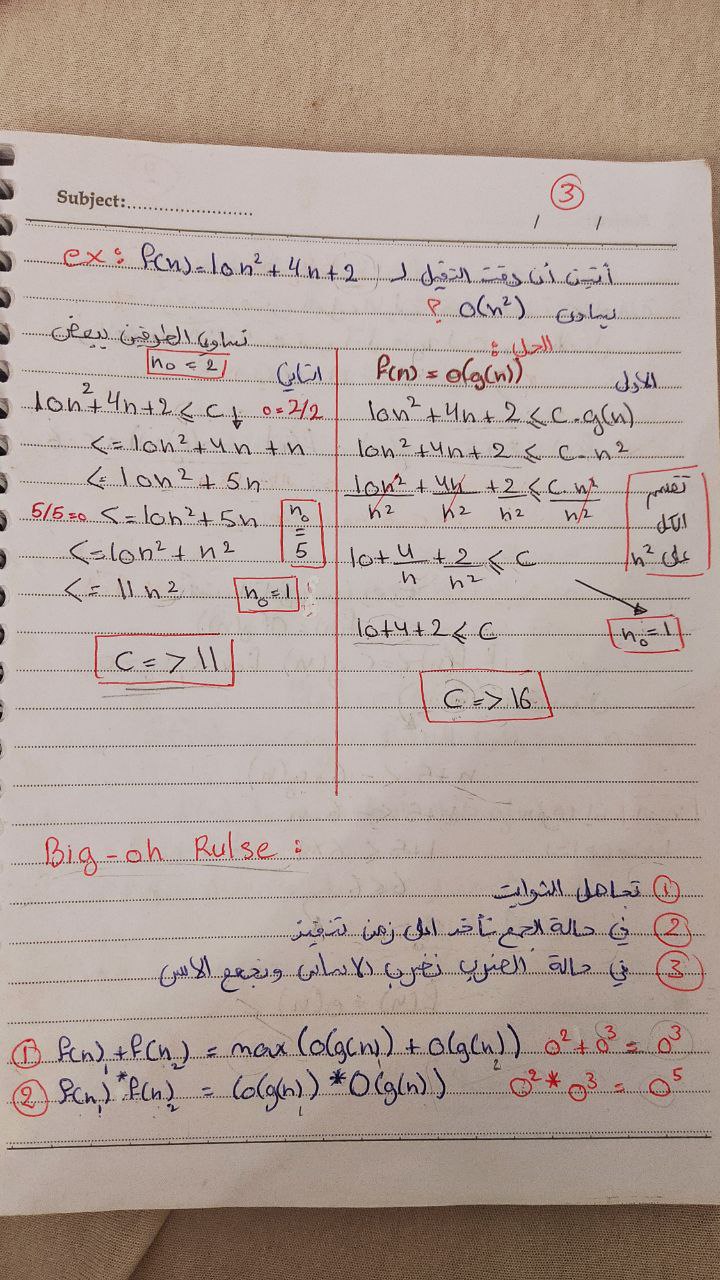 Subject:........................
3
/ /
ex: f(n)=10n²+4n+2 أثبتي أن وقت التنفيذ لـ
يساوي O(n²) ؟
الحل:
الأول
f(n) = O(g(n))
10n²+4n+2 ≤ C.g(n)
10n²+4n+2 ≤ C.n²
10n²/n² + 4n/n² + 2/n² ≤ C.n²/n²
نقسم
الكل
على n²
10+4/n+2/n² ≤ C
n₀=1
10+4+2 ≤ C
C=>16
تساوي الطرفين ببعض
n₀=2
الثاني
10n²+4n+2 ≤ C↓ 0=2/2
<=10n²+4n+n
<=10n²+5n
5/5=0 <=10n²+5n
n₀
=
5
<=10n²+n²
<=11n² n₀=1
C=>11
Big-oh Rulse:
① تجاهل الثوابت
② في حالة الجمع نأخذ اعلى زمن تنفيذ
③ في حالة الضرب نضرب الاساس ونجمع الاس
① f(n)₁+f(n)₂ = max(O(g(n))+O(g(n))₂) O²+O³=O³
② f(n)₁*f(n)₂ = (O(g(n))₁*O(g(n)) O²*O³=O⁵